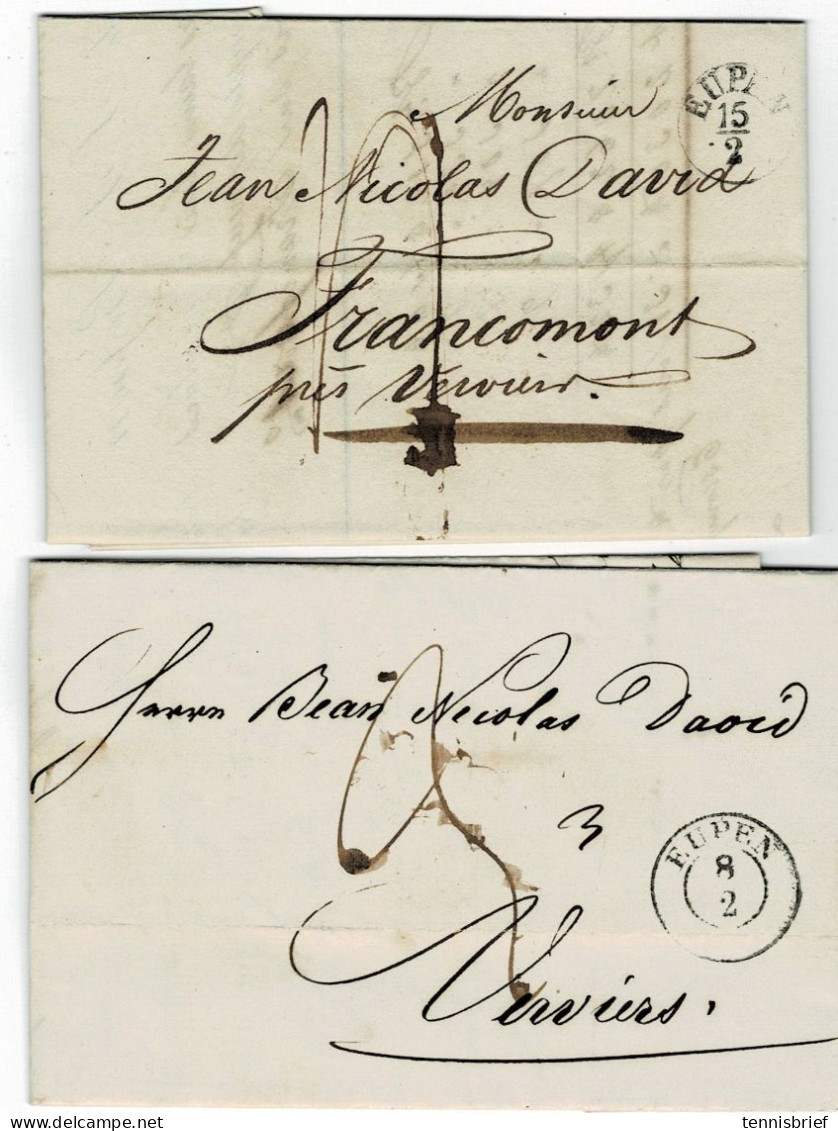 Monsieur
EUPEN
15
2
Jean Nicolas David
Francomont
près Verviers.
Herrn Jean Nicolas David
3
EUPEN
8
2
Verviers.
delcampe.net
tennisbrief